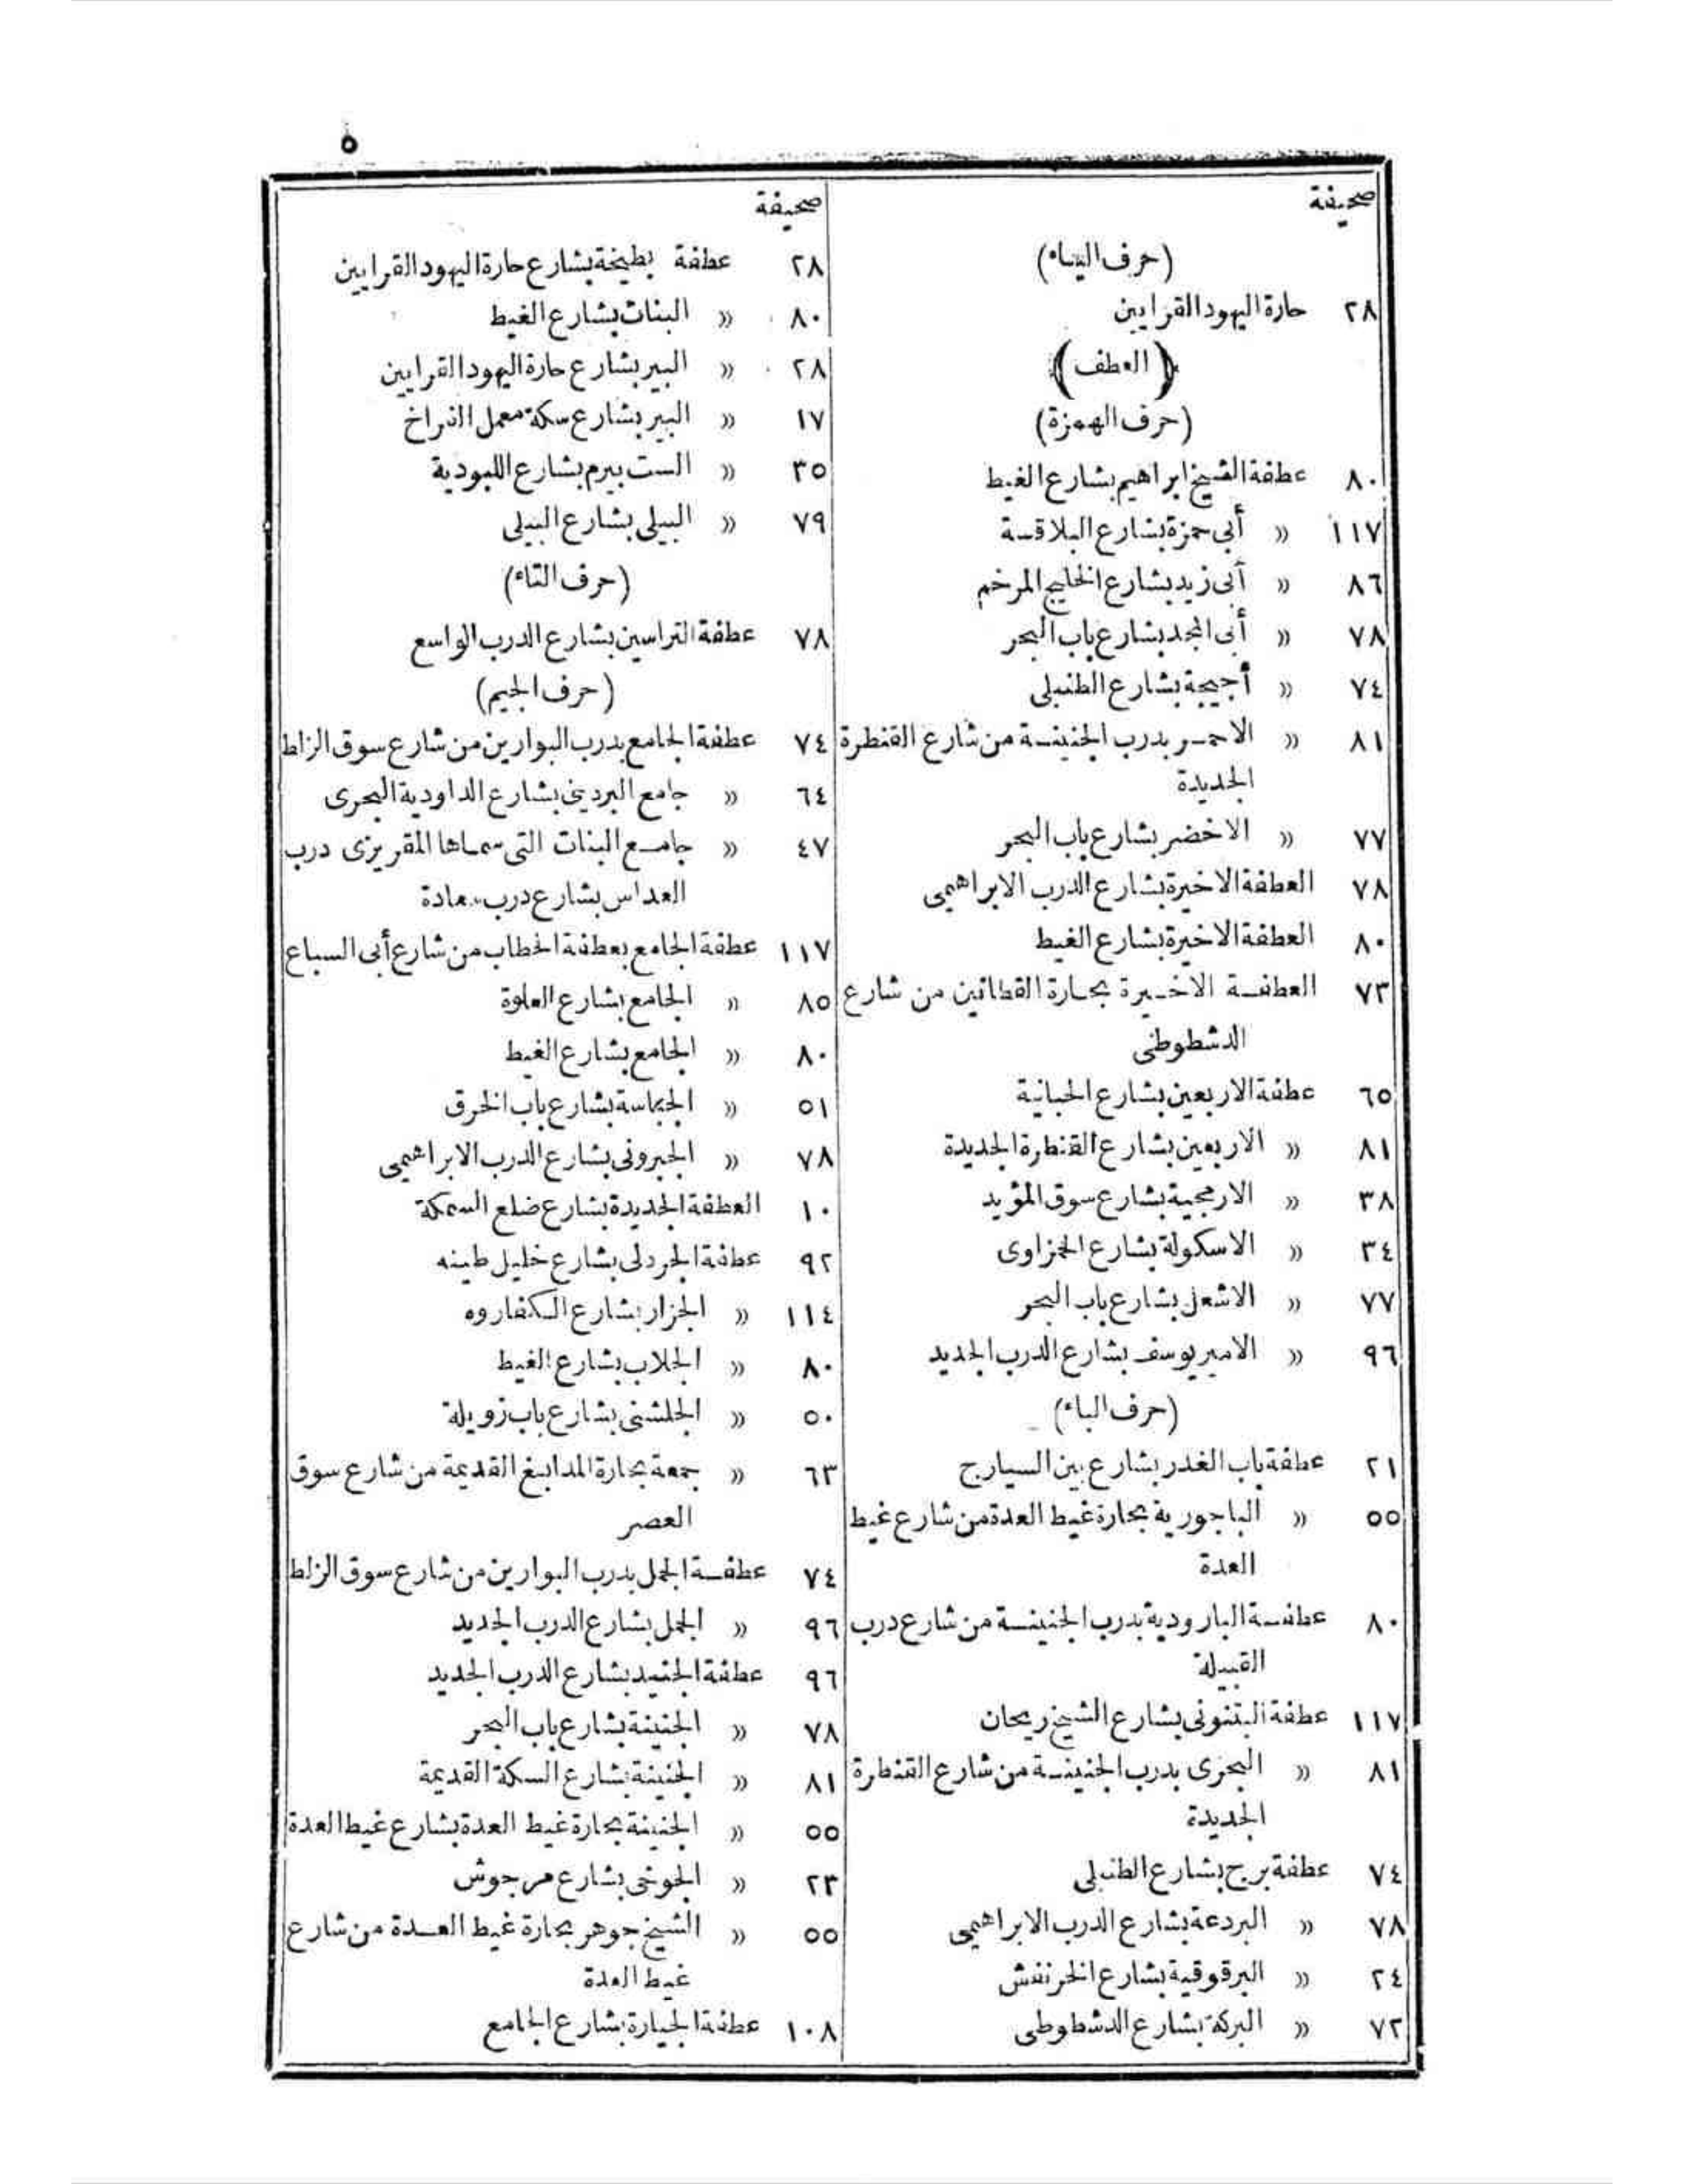 ٥
صحيفة
(حرف الياء)
٢٨ حارة اليهود القرايين
(العطف)
(حرف الهمزة)
٨٠ عطفة الشيخ ابراهيم بشارع الغيط
١١٧ » أبى حمزة بشارع البلاقسة
٨٦ » أبى زيد بشارع الخليج المرخم
٧٨ » أبى المجد بشارع باب البحر
٧٤ » أجيجة بشارع الطنبلى
٨١ » الاحمر بدرب الجنينة من شارع القنطرة
الجديدة
٧٧ » الاخضر بشارع باب البحر
٧٨ العطفة الاخيرة بشارع الدرب الابراهيمى
٨٠ العطفة الاخيرة بشارع الغيط
٧٣ العطفة الاخيرة بحارة القطانين من شارع
الدشطوطى
٦٥ عطفة الاربعين بشارع الحبانية
٨١ » الاربعين بشارع القنطرة الجديدة
٣٨ » الارمجية بشارع سوق المؤيد
٣٤ » الاسكولة بشارع الحمزاوى
٧٧ » الاشعل بشارع باب البحر
٩٦ » الامير يوسف بشارع الدرب الجديد
(حرف الباء)
٢١ عطفة باب الغدر بشارع بين السيارج
٥٥ » الباجورية بحارة غيط العدة من شارع غيط
العدة
٨٠ عطفة البارودية بدرب الجنينة من شارع درب
القبيلة
١١٧ عطفة البتنونى بشارع الشيخ ريحان
٨١ » البحرى بدرب الجنينة من شارع القنطرة
الجديدة
٧٤ عطفة برج بشارع الطنبلى
٧٨ » البردعة بشارع الدرب الابراهيمى
٢٤ » البرقوقية بشارع الخرنفش
٧٢ » البركة بشارع الدشطوطى
صحيفة
٢٨ عطفة بطيخة بشارع حارة اليهود القرايين
٨٠ » البنات بشارع الغيط
٢٨ » البير بشارع حارة اليهود القرايين
١٧ » البير بشارع سكة معمل الفراخ
٣٥ » الست بيرم بشارع اللبودية
٧٩ » البيلى بشارع البيلى
(حرف التاء)
٧٨ عطفة التراسين بشارع الدرب الواسع
(حرف الجيم)
٧٤ عطفة الجامع بدرب البوارين من شارع سوق الزلط
٦٤ » جامع البردينى بشارع الداودية البحرى
٤٧ » جامع البنات التى سماها المقريزى درب
العداس بشارع درب سعادة
١١٧ عطفة الجامع بعطفة الخطاب من شارع أبى السباع
٨٥ » الجامع بشارع العلوة
٨٠ » الجامع بشارع الغيط
٥١ » الجباسة بشارع باب الخرق
٧٨ » الجبرونى بشارع الدرب الابراهيمى
١٠ العطفة الجديدة بشارع ضلع السمكة
٩٢ عطفة الجردلى بشارع خليل طينه
١١٤ » الجزار بشارع الكفاروه
٨٠ » الجلاب بشارع الغيط
٥٠ » الجلشنى بشارع باب زويلة
٦٣ » جمعة بحارة المدابغ القديمة من شارع سوق
العصر
٧٤ عطفة الجمل بدرب البوارين من شارع سوق الزلط
٩٦ » الجمل بشارع الدرب الجديد
٩٦ عطفة الجنيد بشارع الدرب الجديد
٧٨ » الجنينة بشارع باب البحر
٨١ » الجنينة بشارع السكة القديمة
٥٥ » الجنينة بحارة غيط العدة بشارع غيط العدة
٢٣ » الجوخى بشارع مرجوش
٥٥ » الشيخ جوهر بحارة غيط العدة من شارع
غيط العدة
١٠٨ عطفة الجيارة بشارع الجامع